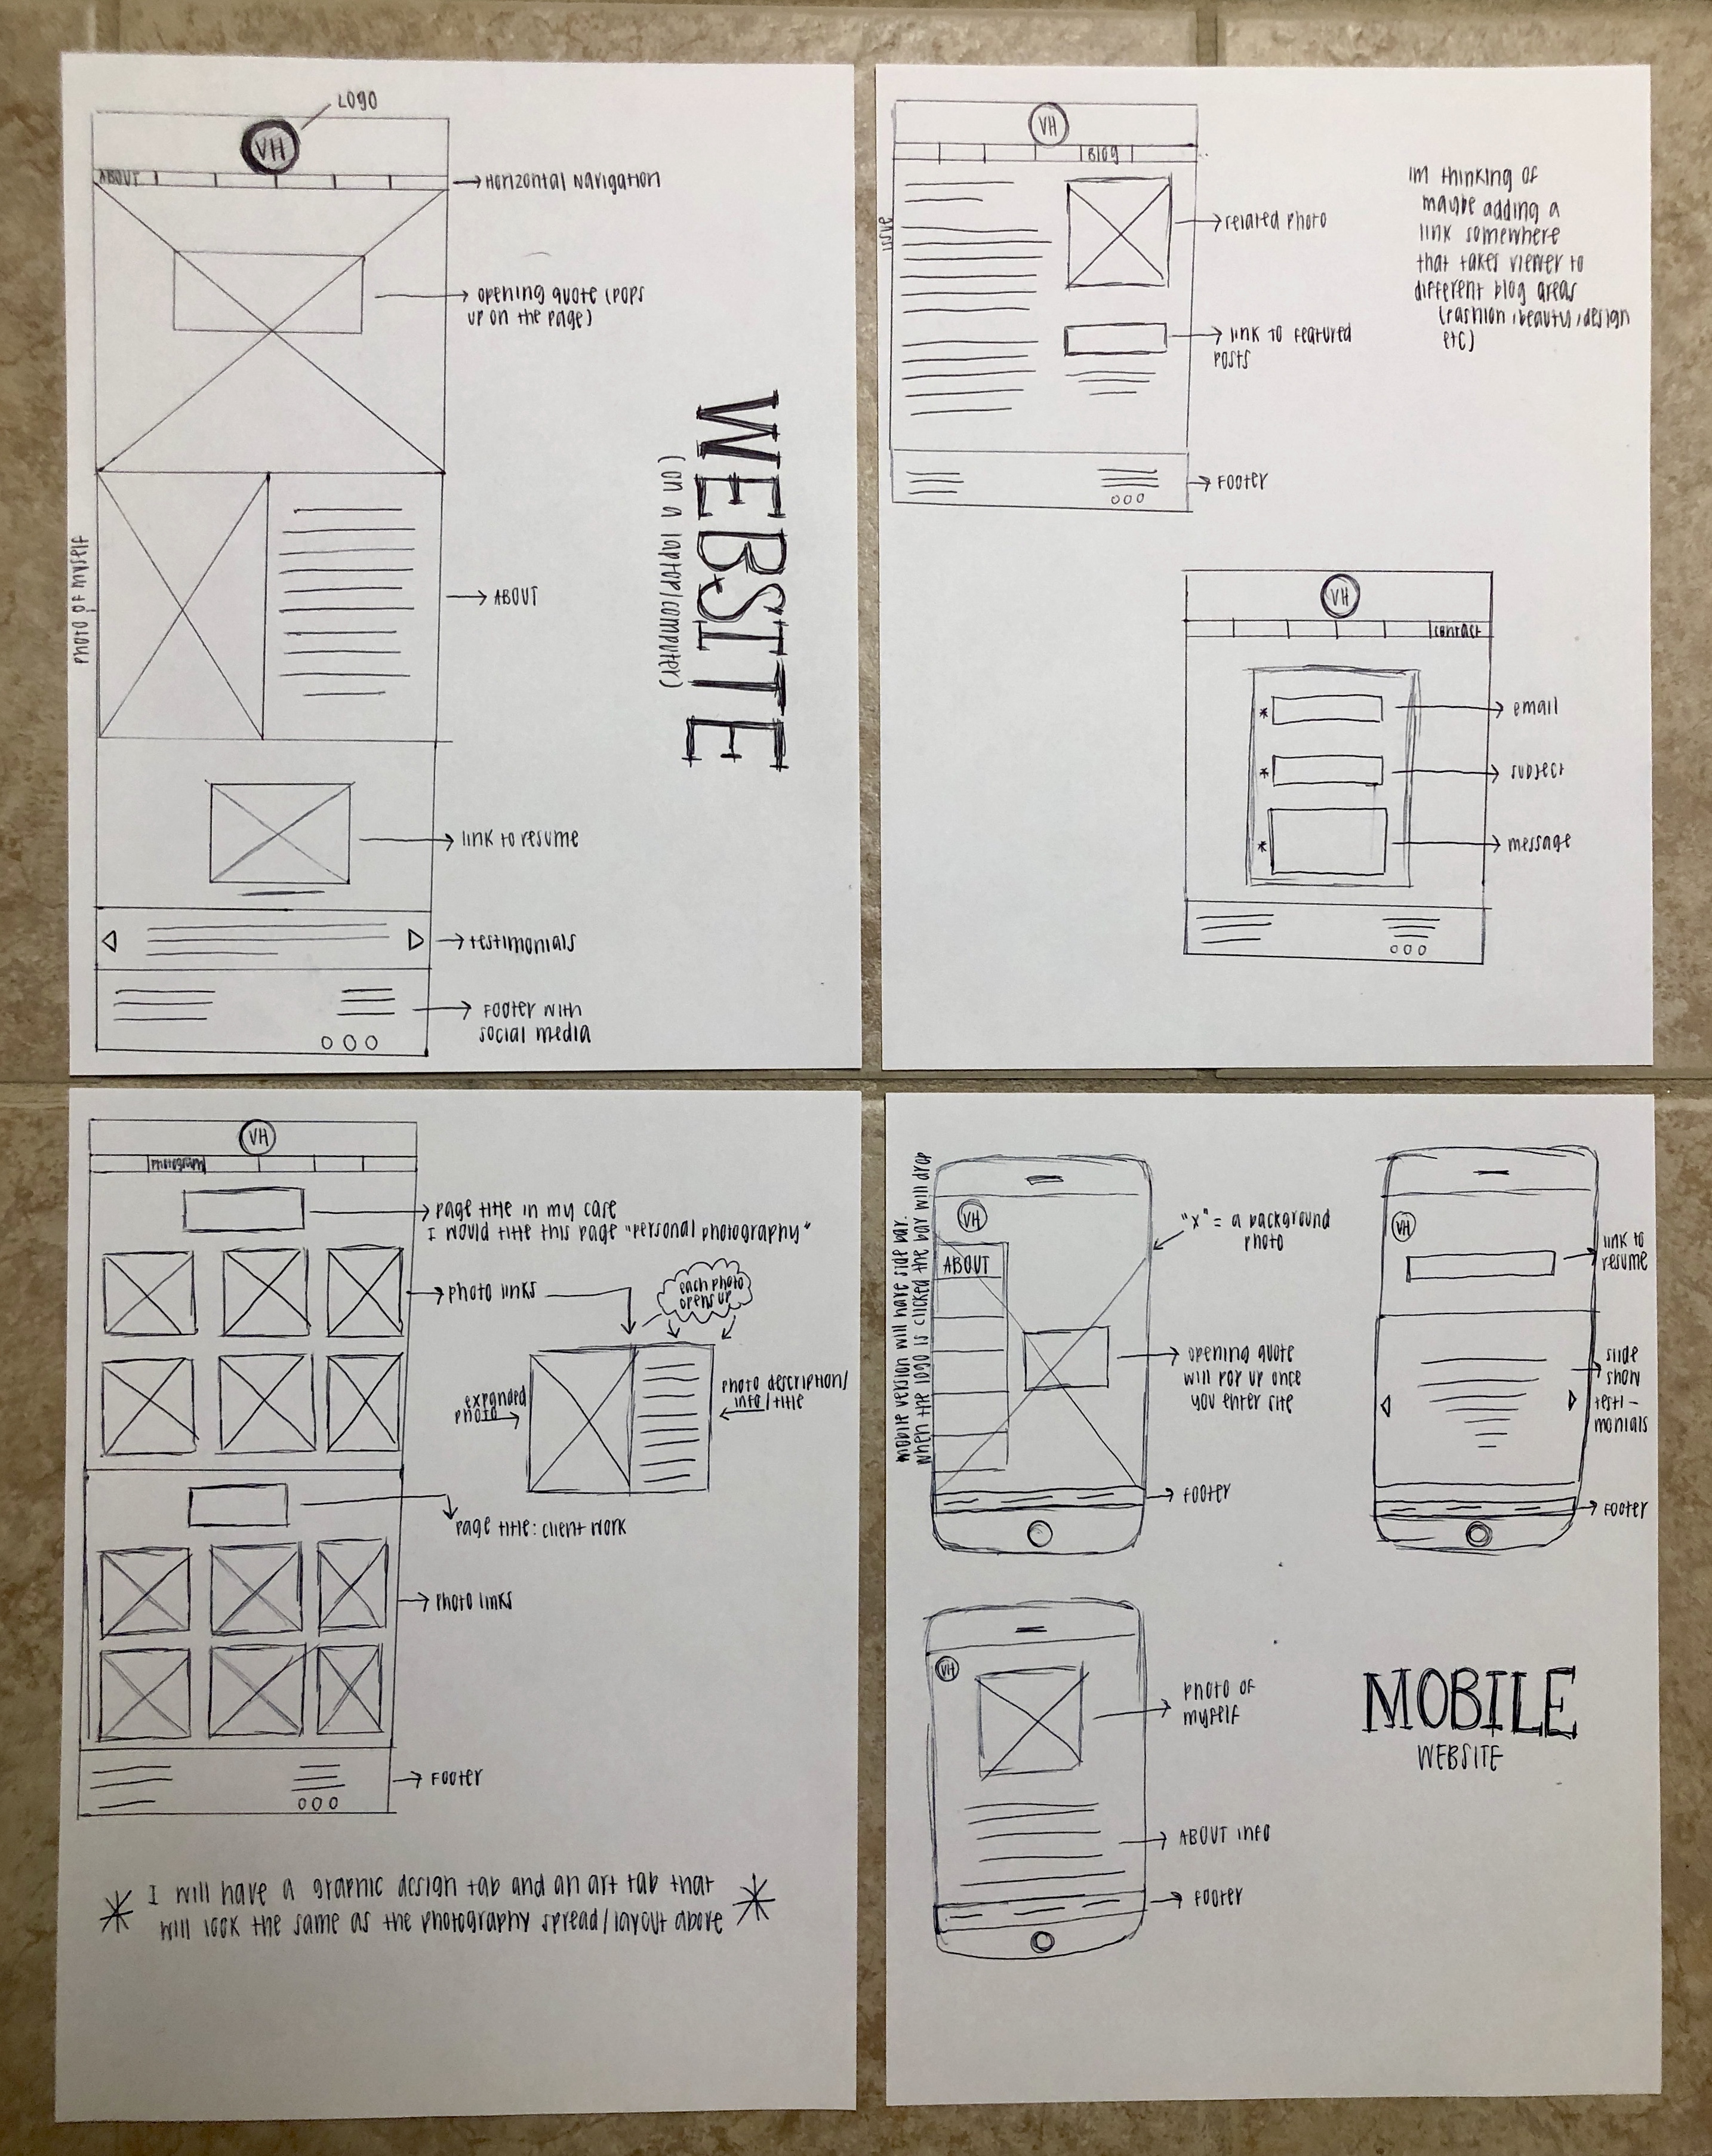 LOGO
VH
ABOUT
→ Horizontal Navigation
→ opening quote (pops
up on the page)
WEBSITE
(on a laptop/computer)
photo of myself
→ ABOUT
→ link to resume
→ testimonials
→ Footer with
social media
VH
Blog
issue
→ related photo
→ link to featured
posts
→ Footer
Im thinking of
maybe adding a
link somewhere
that takes viewer to
different blog areas
(fashion, beauty, design
etc)
VH
contact
* → email
* → subject
* → message
VH
Photography
→ page title in my case
I would title this page "personal photography"
→ photo links
each photo
opens up
expanded
photo →
photo description/
info/title
page title: client work
→ photo links
→ Footer
* I will have a graphic design tab and an art tab that *
will look the same as the photography spread/layout above
mobile version will have side bar.
when the logo is clicked the bar will drop
VH
ABOUT
"x" = a background
photo
→ opening quote
will pop up once
you enter site
→ Footer
VH
link to
resume
slide
show
testi-
monials
→ Footer
VH
photo of
myself
→ ABOUT info
→ Footer
MOBILE
WEBSITE